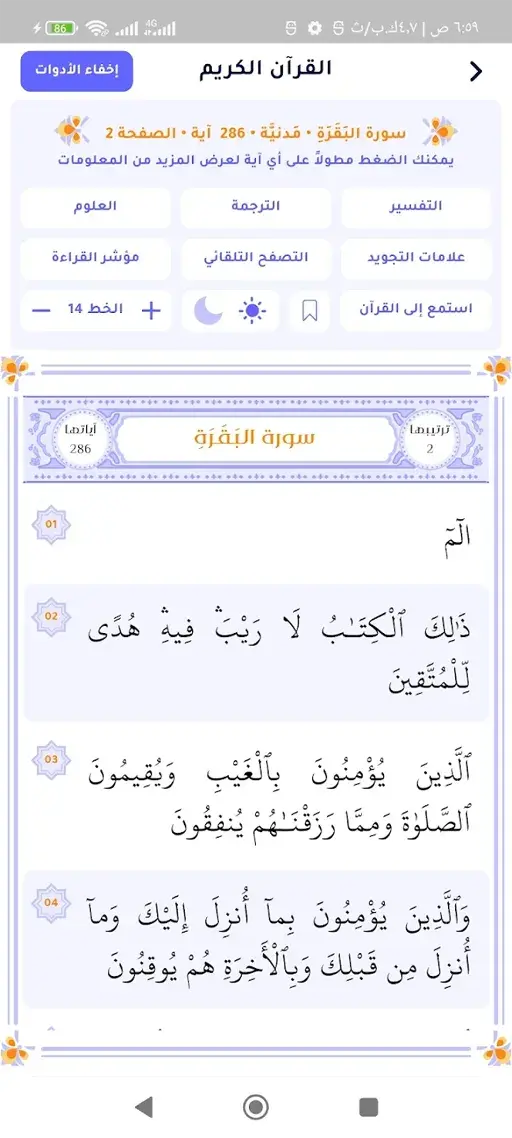 ٦:٥٩ ص | ٤,٧ك.ب/ث
4G
86
القرآن الكريم
إخفاء الأدوات
سورة البَقَرَةِ • مَدنيَّة • 286 آية • الصفحة 2
يمكنك الضغط مطولاً على أي آية لعرض المزيد من المعلومات
التفسير
الترجمة
العلوم
علامات التجويد
التصفح التلقائي
مؤشر القراءة
استمع إلى القرآن
+ الخط 14 −
ترتيبها
2
سورة البَقَرَةِ
آياتها
286
الٓمٓ
01
ذَٰلِكَ ٱلْكِتَـٰبُ لَا رَيْبَ ۛ فِيهِ ۛ هُدًى
02
لِّلْمُتَّقِينَ
ٱلَّذِينَ يُؤْمِنُونَ بِٱلْغَيْبِ وَيُقِيمُونَ
03
ٱلصَّلَوٰةَ وَمِمَّا رَزَقْنَـٰهُمْ يُنفِقُونَ
وَٱلَّذِينَ يُؤْمِنُونَ بِمآ أُنزِلَ إِلَيْكَ وَمآ
04
أُنزِلَ مِن قَبْلِكَ وَبِٱلْأَخِرَةِ هُمْ يُوقِنُونَ